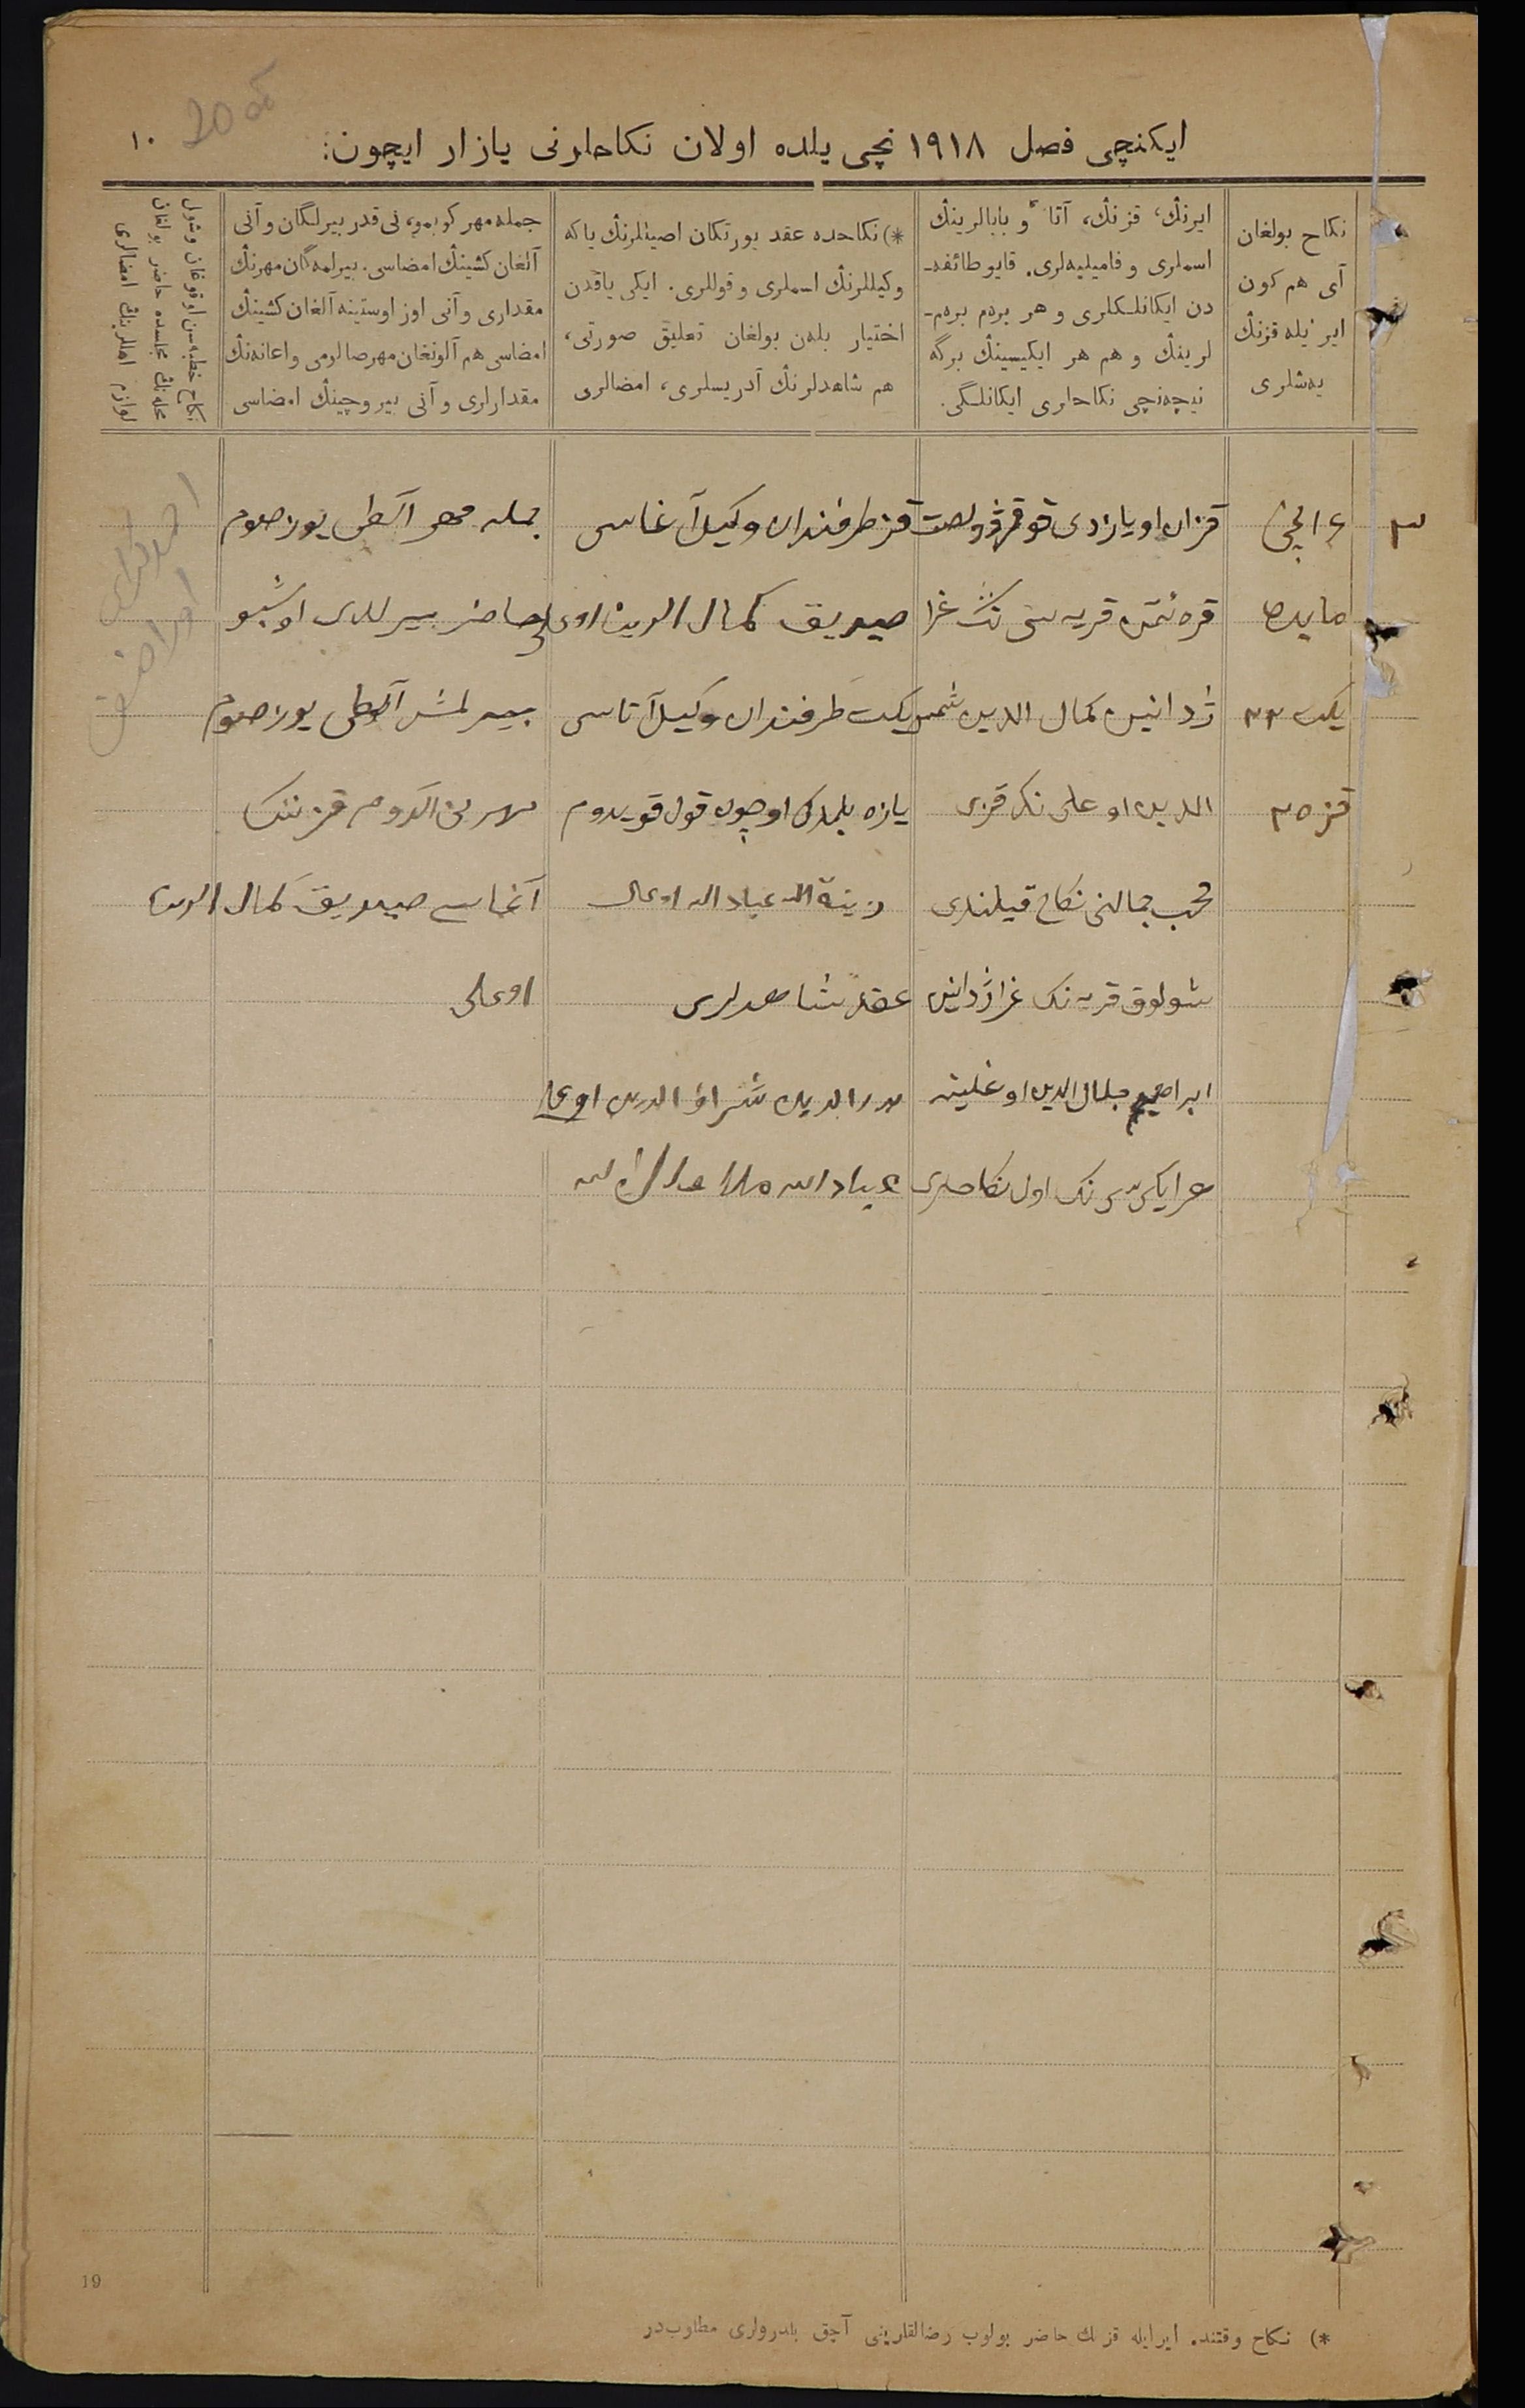 ۱۰
ایکنچی فصل ۱۹۱۸ نچی یلده اولان نکاحلرنی یازار ایچون:
نکاح بولغان
آی هم کون
ایر یله قزنڭ
یه‌شلری
ایرنڭ، قزنڭ، آتا و بابالرینڭ
اسملری و فامیلیه‌لری. قایو طائفه‌ـ
دن ایکانلکلری و هر برم برم‌ـ
لرینڭ و هم هر ایکیسینڭ برگه
نیچه‌نچی نکاحلری ایکانلگی.
*) نکاحده عقد یورتکان اصیللرنڭ یاکه
وکیللرنڭ اسملری و قوللری. ایکی یاقدن
اختیار بله‌ن بولغان تعلیق صورتی،
هم شاهدلرنڭ آدریسلری، امضالری
جمله مهر کوبمو، نی قدر بیرلگان و آنی
آلغان کشینڭ امضاسی. بیرلمه‌گان مهرنڭ
مقداری و آنی اوز اوستینه آلغان کشینڭ
امضاسی هم آلونغان مهرصالرمی و اعانه‌نڭ
مقدارلری و آنی بیروچینڭ امضاسی
نکاح خطبه‌سن اوقوغان وشول
محله‌نڭ مجلسده حاضر بولغان
لوازم اهللرینڭ امضالری
۳
۱۶ نچی
مایده
یکت ۲۳
قز ۲۵
قزان اویازدی
قریه سی نڭ
کمال الدین شمس
الدین اوغلی نڭ قزی
محب جمالنی نکاح قیلندی
قریه نڭ
ابراهیم جلال الدین اوغلینه
هر ایکی سی نڭ اول نکاحلری
قز طرفندان وکیل آغاسی
صیدیق کمال الدین اوغلی
یکت طرفندان وکیل آتاسی
یازه بلمادك اوچون قول قویدوم
عباد الله اوغلی
عقد شاهدلری
بدر الدین شرف الدین اوغلی
عباد الله
جمله مهر آلطی یوز صوم
حاضر بیرلدی اوشبو
بیرلمش آلطی یوز صوم
مهرنی آلدوم قز ننڭ
آغاسی صیدیق کمال الدین
اوغلی
19
*) نکاح وقتنده ایر ایله قز لك حاضر بولوب رضالقلرینی آچق بلدرولری مطلوب‌در